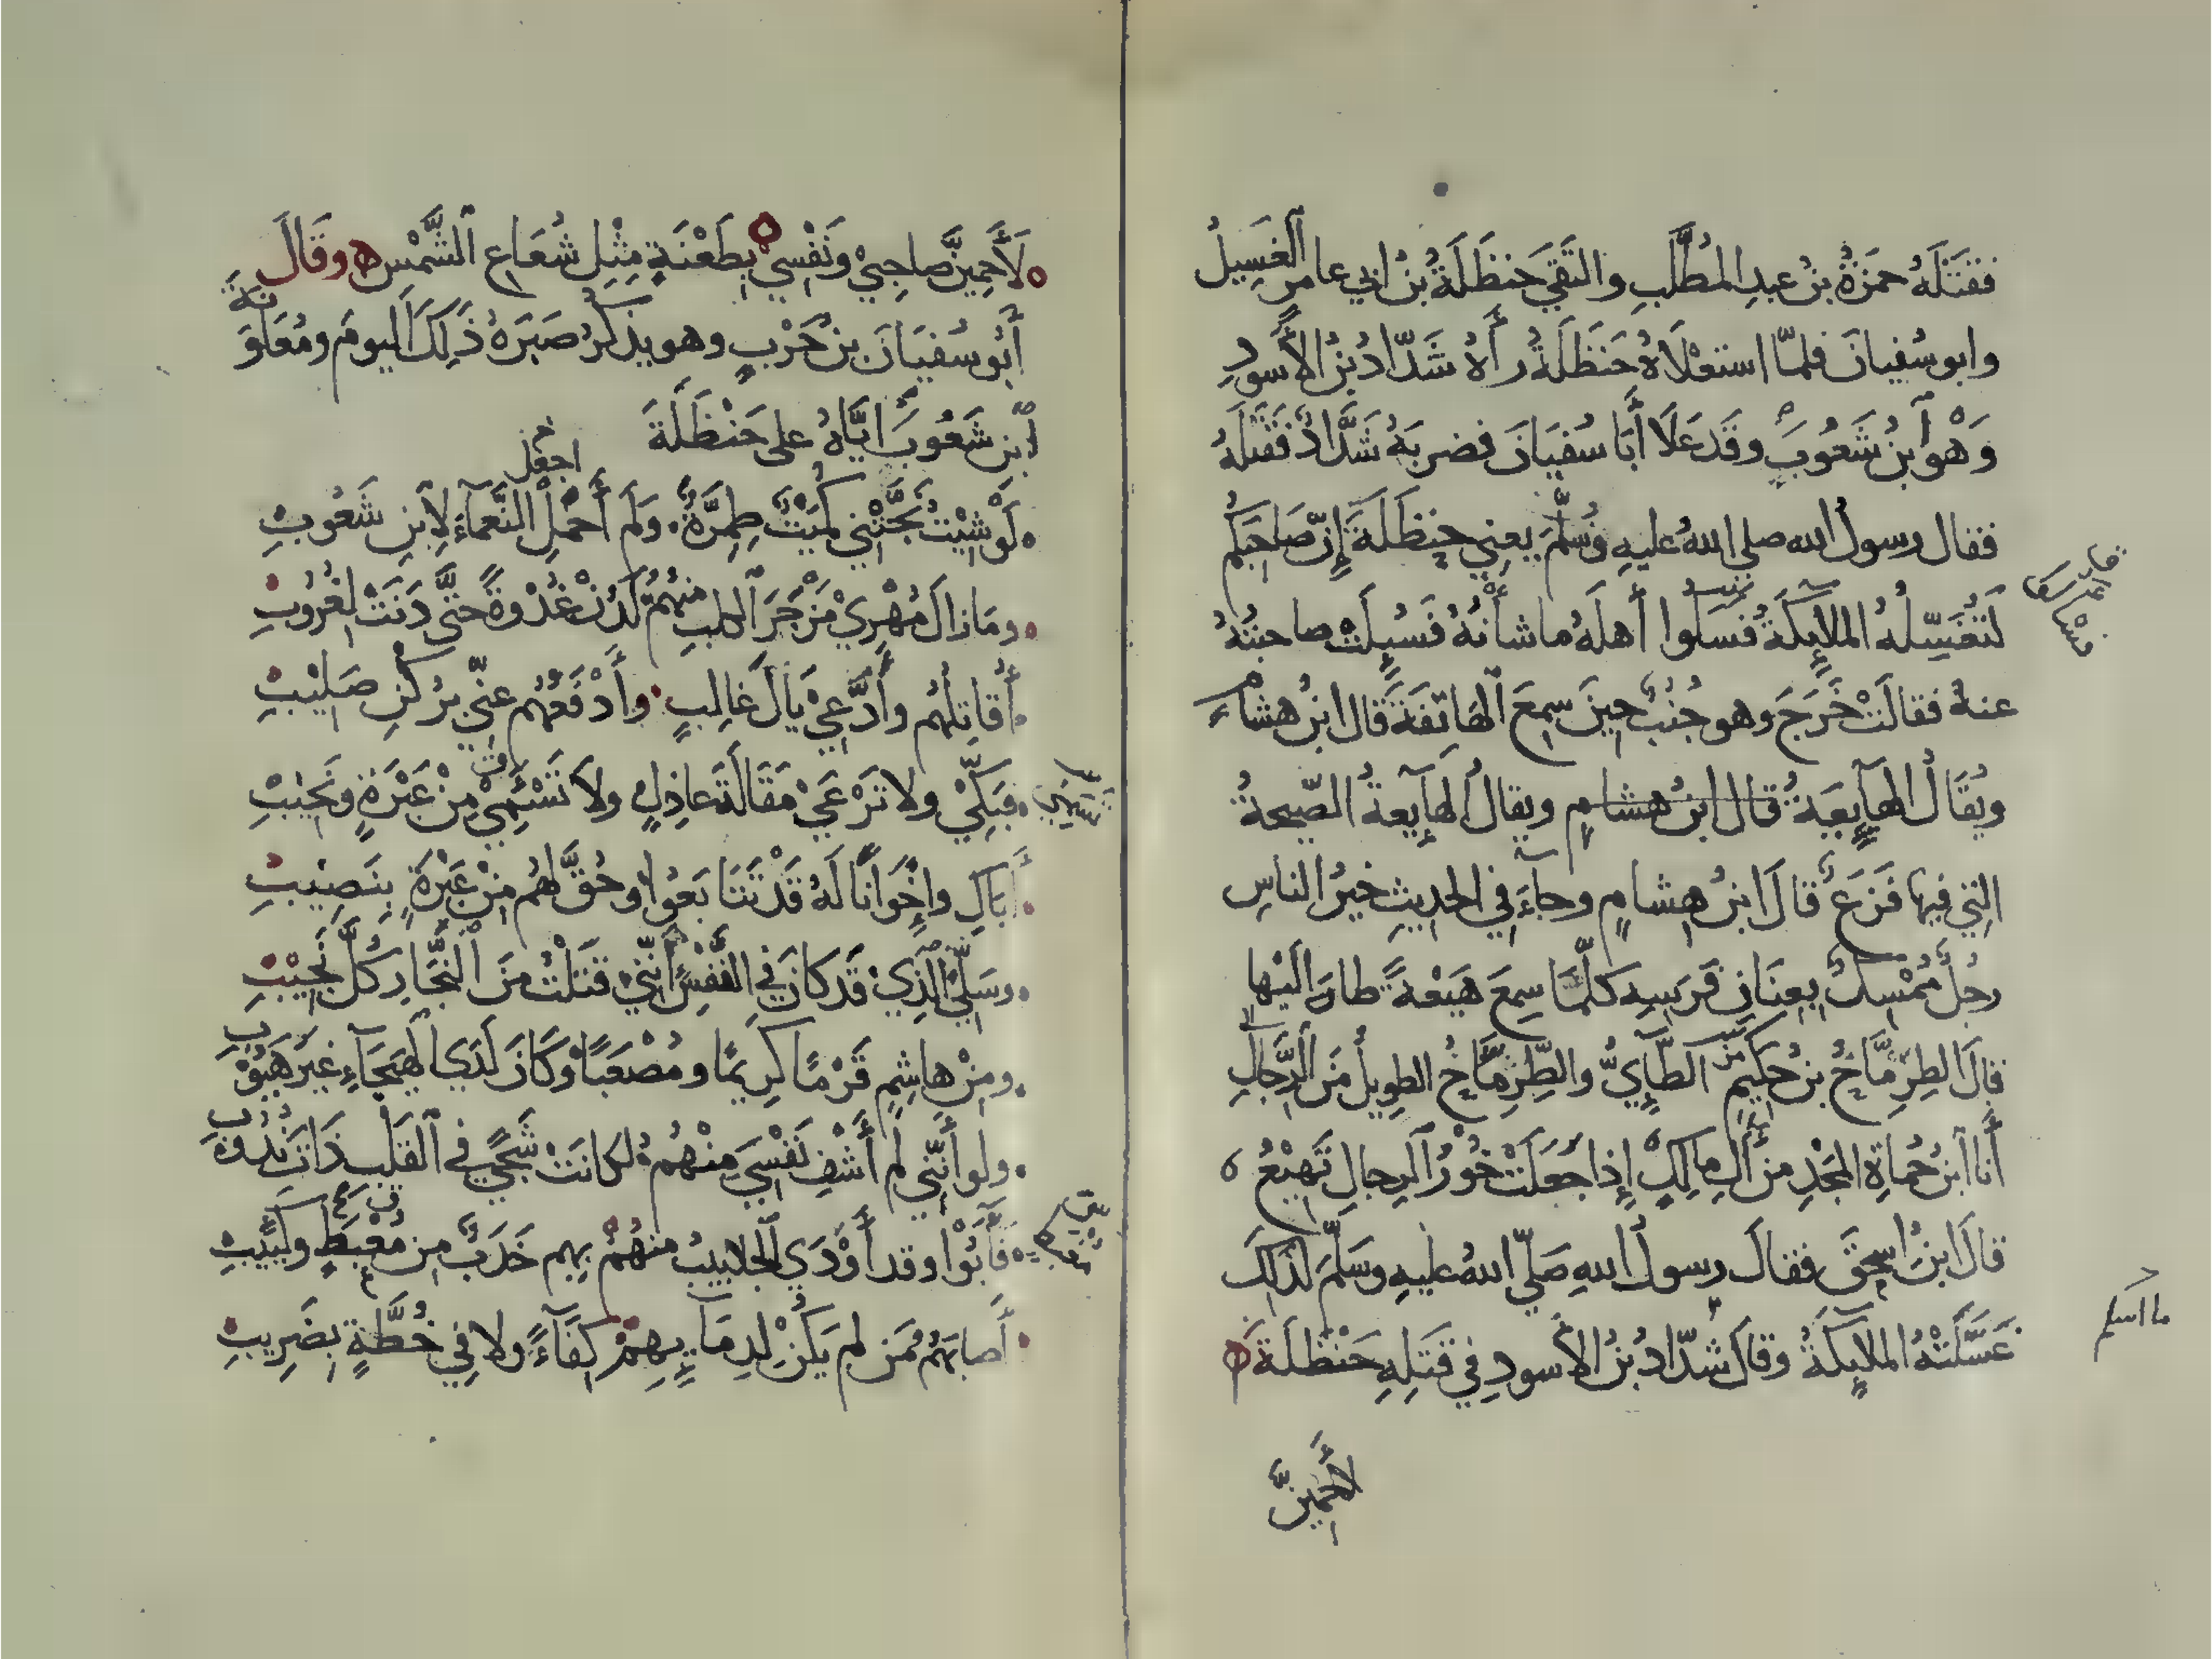 فقتَلَهُ حمزةُ بنُ عبدِ المُطَّلِبِ والتَقَى حنظَلَةُ بنُ ابي عامرٍ الغَسِيلُ
وابو سُفيانَ فلمّا استعْلَاهُ حَنظَلَةُ رأهُ شَدّادُ بنُ الأسودِ
وَهْوَ ابنُ شَعُوبَ وقَد عَلَا أَبَا سُفيَانَ فضربَهُ شَدَّادٌ فَقَتَلَهُ
فقال رسولُ الله صلى اللهُ عليهِ وسَلّمَ يعني حنظَلَةَ إِنّ صَاحِبَكُم
لَتُغَسِّلُهُ الملآئِكَةُ فسَلُوا أَهلَهُ ما شأنُهُ فَسُئِلَتْ صاحبتُهُ
عنهُ فقالَتْ خَرَجَ وهو جُنُبٌ حينَ سمِعَ الهَاتِفَةَ قال ابنُ هشام
ويُقَالُ الهآئِعَةُ قال ابنُ هشامٍ ويقالُ الهآئِعةُ الصّيحةُ
التي فيها فَزَعٌ قالَ ابنُ هشامٍ وجآءَ في الحديثِ خيرُ الناسِ
رجُلٌ مُمْسِكٌ بِعِنَانِ فَرَسِهِ كلّمَا سمِعَ هَيْعةً طارَ الَيْها
قالَ الطِرِمَّاحُ بنُ حَكِيمٍ الطّآئِيُّ والطِّرِمَّاحُ الطويلُ مِنَ الرِّجالِ
أَنا ابنُ حُمَاةِ المَجْدِ من آلِ مالِكٍ إذا جَعَلَتْ خُورُ الرجالِ تَهِيْعُ
قالَ ابنُ اسحقَ فقالَ رسولُ اللهِ صَلّى اللهُ عليهِ وسَلّمَ لذلِكَ
غَسَّلَتْهُ الملآئِكَةُ وقالَ شدّادُ بنُ الأسودِ في قَتلِهِ حَنْظَلَةَ
لأَحْمِيَنَّ
ما اسلم
لَأَحْمِيَنَّ صاحِبِيْ وَنَفْسِيْ بِطَعْنَةٍ مِثْلِ شُعَاعِ الشَّمْسِ وقَالَ
أَبُو سُفيَانَ بنُ حَرْبٍ وهو يذكرُ صَبرَهُ ذَلِكَ اليومَ ومُعَاوَنَةَ
ابنِ شَعُوبَ ايَّاهُ على حَنْظَلَةَ
لَوْ شِيْتُ نَجَّتْنِي كُمَيْتٌ طِمِرَّةٌ وَلَم أَحْمِلِ النَّعمآءَ لِابنِ شَعُوبِ
ومَا زالَ مُهْرِيْ مَزْجَرَ الكلبِ منهُمُ لَدُنْ غُدْوةً حتّى دَنَتْ لِغُرُوبِ
أُقاتِلُهُم وأَدَّعِيْ يَالَ غَالِبٍ وأَدْفَعُهُم عنّي برُكنِ صَلِيْبِ
فَبَكِّيْ ولا تَرْعَيْ مَقَالَةَ عاذِلٍ ولا تَسْئَمِيْ مِنْ عَبْرَةٍ ونَحِيْبِ
أَباكِ وإِخْوَانًا لَهُ قَدْ تَتَابَعُوا وحُقَّ لهُم مِنْ عَبْرَةٍ بِنَصِيْبِ
وسَلّي الّذِيْ قَد كانَ في النَّفْسِ أَنّنِيْ قَتَلْتُ مِنَ النَّجّارِ كلَّ نَجِيْبِ
ومِنْ هاشِمٍ قَرْمًا كرِيمًا ومُصْعَبًا وكَانَ لَدَى الهَيْجَآءِ غيرَ هَيُوْبِ
ولو أَنّني لم أَشْفِ نَفْسِيَ مِنْهُمُ لكانَتْ شَجًى في القَلبِ ذَاتَ نُدُوْبِ
فَآبُوْا وقد أَوْدَى الجلابيبُ منهُمْ بهم خَدَبٌ مِن مُغْبِطٍ وكَئِيبِ
أَصابَهُم مَن لم يَكُنْ لِدِمَآئِهِمْ كِفَآءً ولا في خُطَّةٍ بِضَرِيبِ